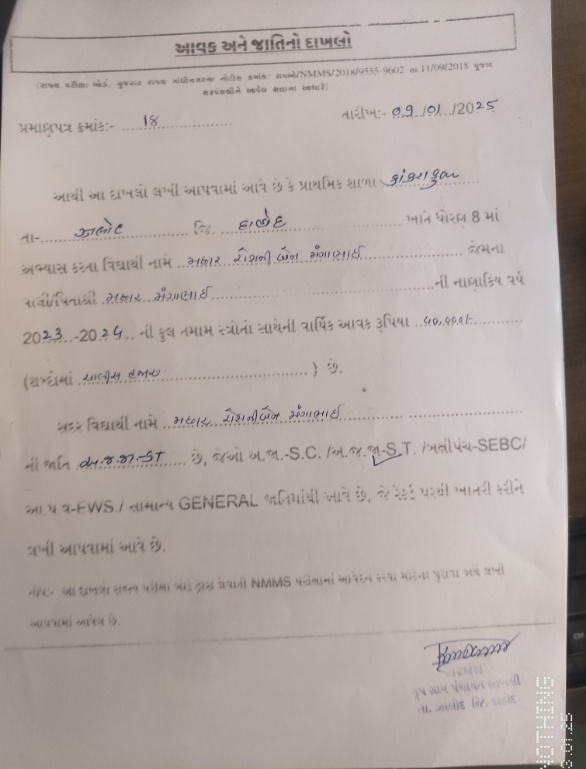 આવક અને જાતિનો દાખલો
(રાજ્ય પરીક્ષા બોર્ડ, ગુજરાત રાજ્ય ગાંધીનગરના નોટીસ ક્રમાંક: રાપબો/NMMS/2018/9555-9602 તા.11/09/2018 મુજબ
સરપંચશ્રીને આપેલ સત્તાના આધારે)
પ્રમાણપત્ર ક્રમાંક:- 18
તારીખ:- 09/01/2025
આથી આ દાખલો લખી આપવામાં આવે છે કે પ્રાથમિક શાળા
તા- ઝાલોદ જિ. દાહોદ ખાતે ધોરણ 8 માં
અભ્યાસ કરતા વિદ્યાર્થી નામે મછાર રોશનીબેન મંગાભાઈ જેમના
વાલી/પિતાશ્રી મછાર મંગાભાઈ ની નાણાકિય વર્ષ
2023-2024 ની કુલ તમામ સ્ત્રોતો સાથેની વાર્ષિક આવક રૂપિયા ૪૦,૦૦૦/-
(શબ્દોમાં ચાલીસ હજાર) છે.
સદર વિદ્યાર્થી નામે મછાર રોશનીબેન મંગાભાઈ
ની જાતિ અ.જ.જા-ST છે, જેઓ અ.જા.-S.C. /અ.જ.જા-S.T. /બક્ષીપંચ-SEBC/
આ પ વ-EWS / સામાન્ય GENERAL જાતિમાંથી આવે છે, જે રેકર્ડ પરથી ખાતરી કરીને
લખી આપવામાં આવે છે.
નોંધ:- આ દાખલો રાજ્ય પરીક્ષા બોર્ડ દ્વારા લેવાતી NMMS પરીક્ષામાં આવેદન કરવા માટેના પુરાવા અર્થે લખી
આપવામાં આવેલ છે.
સરપંચ
ગ્રામ પંચાયત
તા. ઝાલોદ જિ. દાહોદ
NOTHING